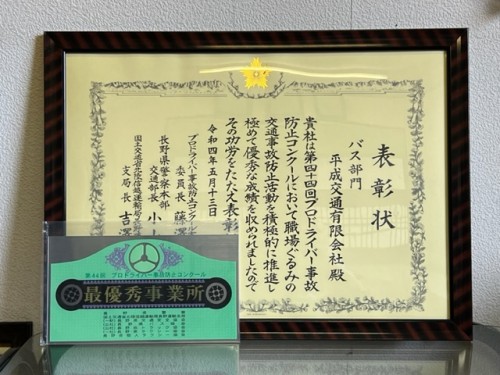 表彰状
バス部門
平成交通有限会社 殿
貴社は第四十四回プロドライバー事故
防止コンクールにおいて職場ぐるみの
交通事故防止活動を積極的に推進し
極めて優秀な成績を収められましたので
その功労をたたえ表彰
令和四年五月十三日
プロドライバー事故防止コンクール
委員長
長野県警察本部
交通部長 小
国土交通省北陸信越運輸局長野
支局長 吉澤
第44回 プロドライバー事故防止コンクール
最優秀事業所